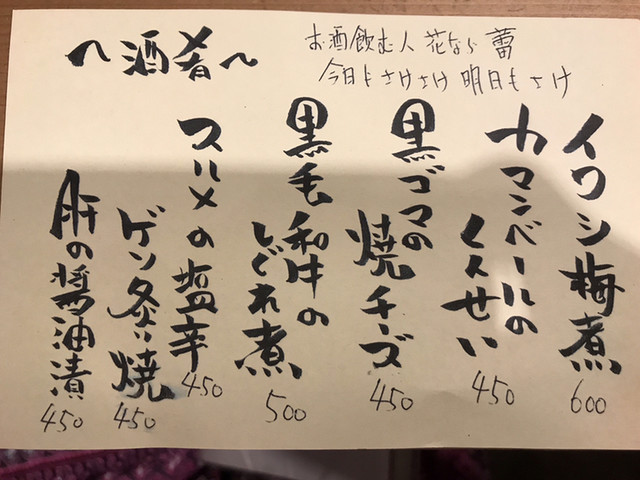 〜酒肴〜
お酒飲む人 花なら 蕾
今日もさけさけ 明日もさけ
イワシ梅煮
600
カマンベールの
くんせい
450
黒ゴマの
焼チーズ
450
黒毛
和牛の
しぐれ煮
500
スルメの塩辛
450
ゲソ炙り焼
450
肝の醤油漬
450